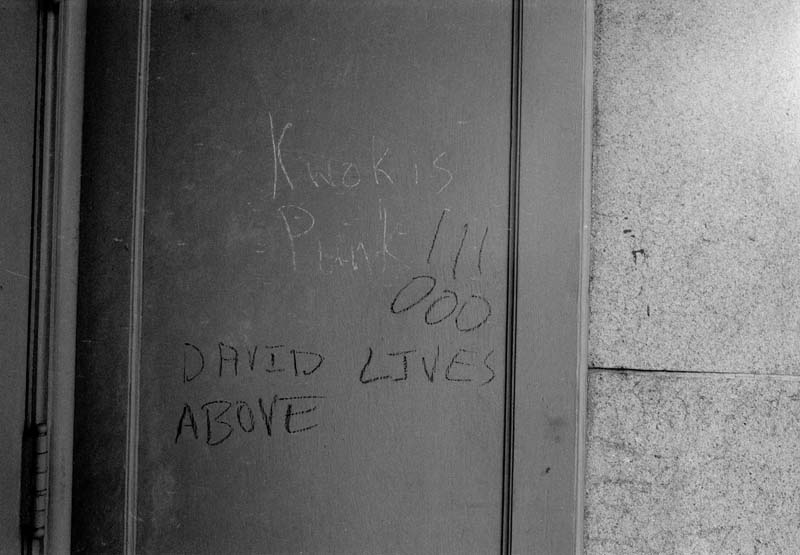 Kwok is
Punk !!!
DAVID LIVES
ABOVE